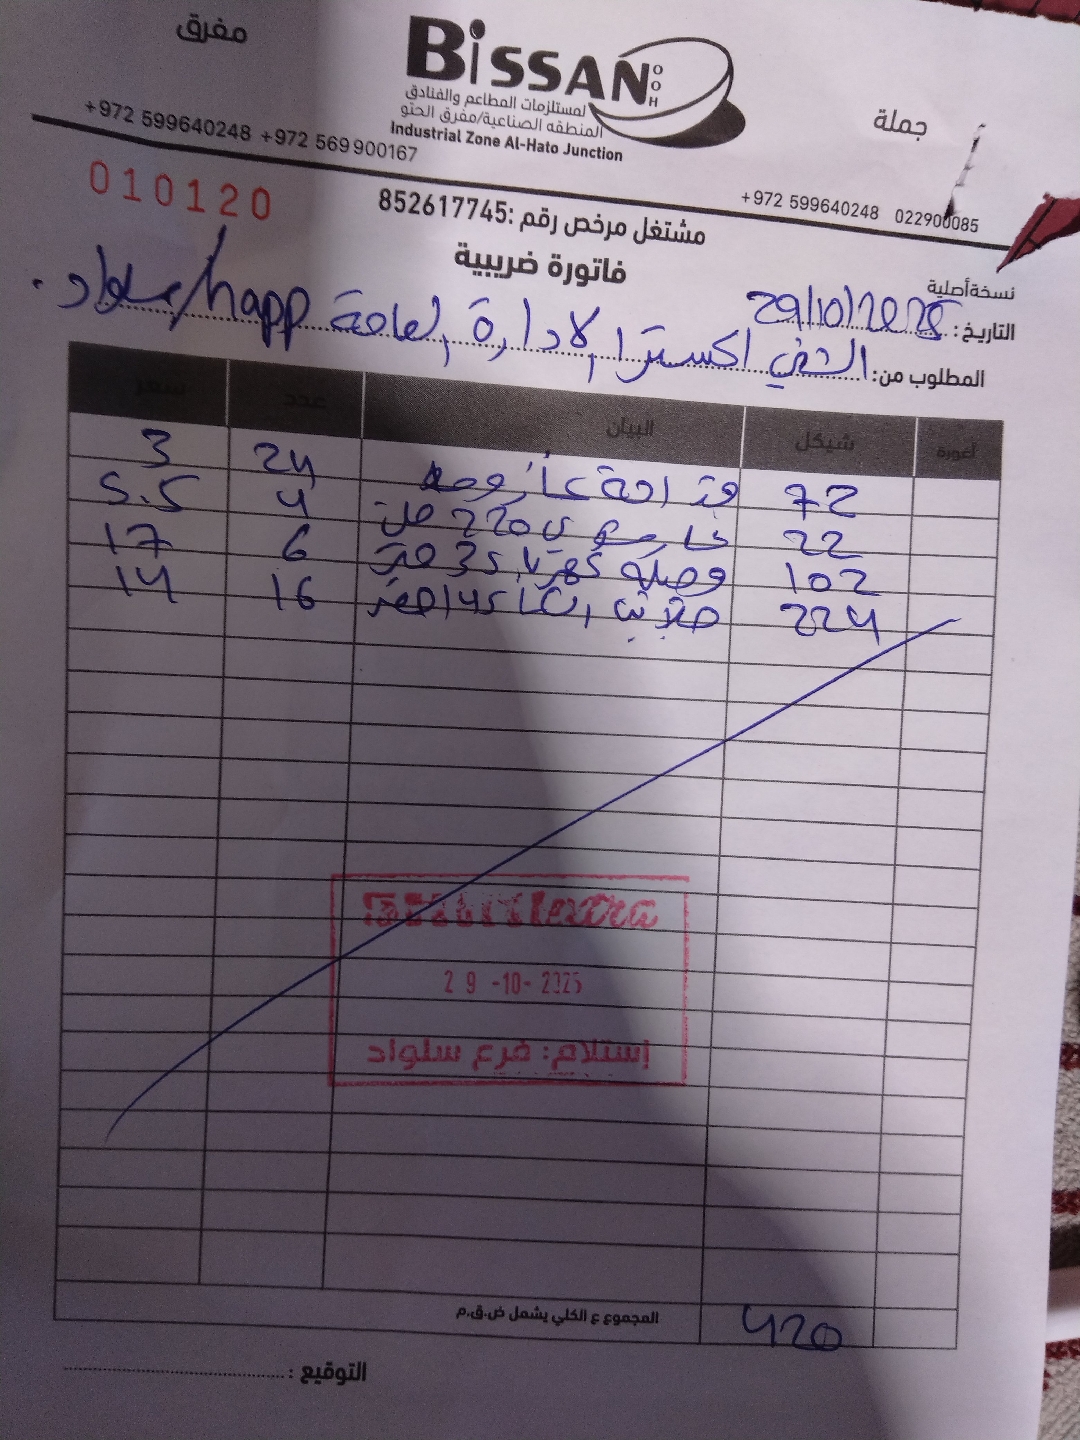 مفرق
BiSSAN
HOO
لمستلزمات المطاعم والفنادق
المنطقه الصناعية/مفرق الحتو
Industrial Zone Al-Hato Junction
جملة
+972 599640248 +972 569900167
+972 599640248 022900085
010120
مشتغل مرخص رقم :852617745
فاتورة ضريبية
نسخة أصلية
التاريخ: 29/10/2025
المطلوب من: الشني اكسترا الادارة العامة happ/سلواد.
أغورة شيكل البيان عدد سعر
72 24 3
22 4 5.5
102 وصلة كهربا 35 متر 6 17
224 16 14
extra
29 -10- 2025
إستلام: فرع سلواد
المجموع ع الكلي يشمل ض.ق.م 420
التوقيع :